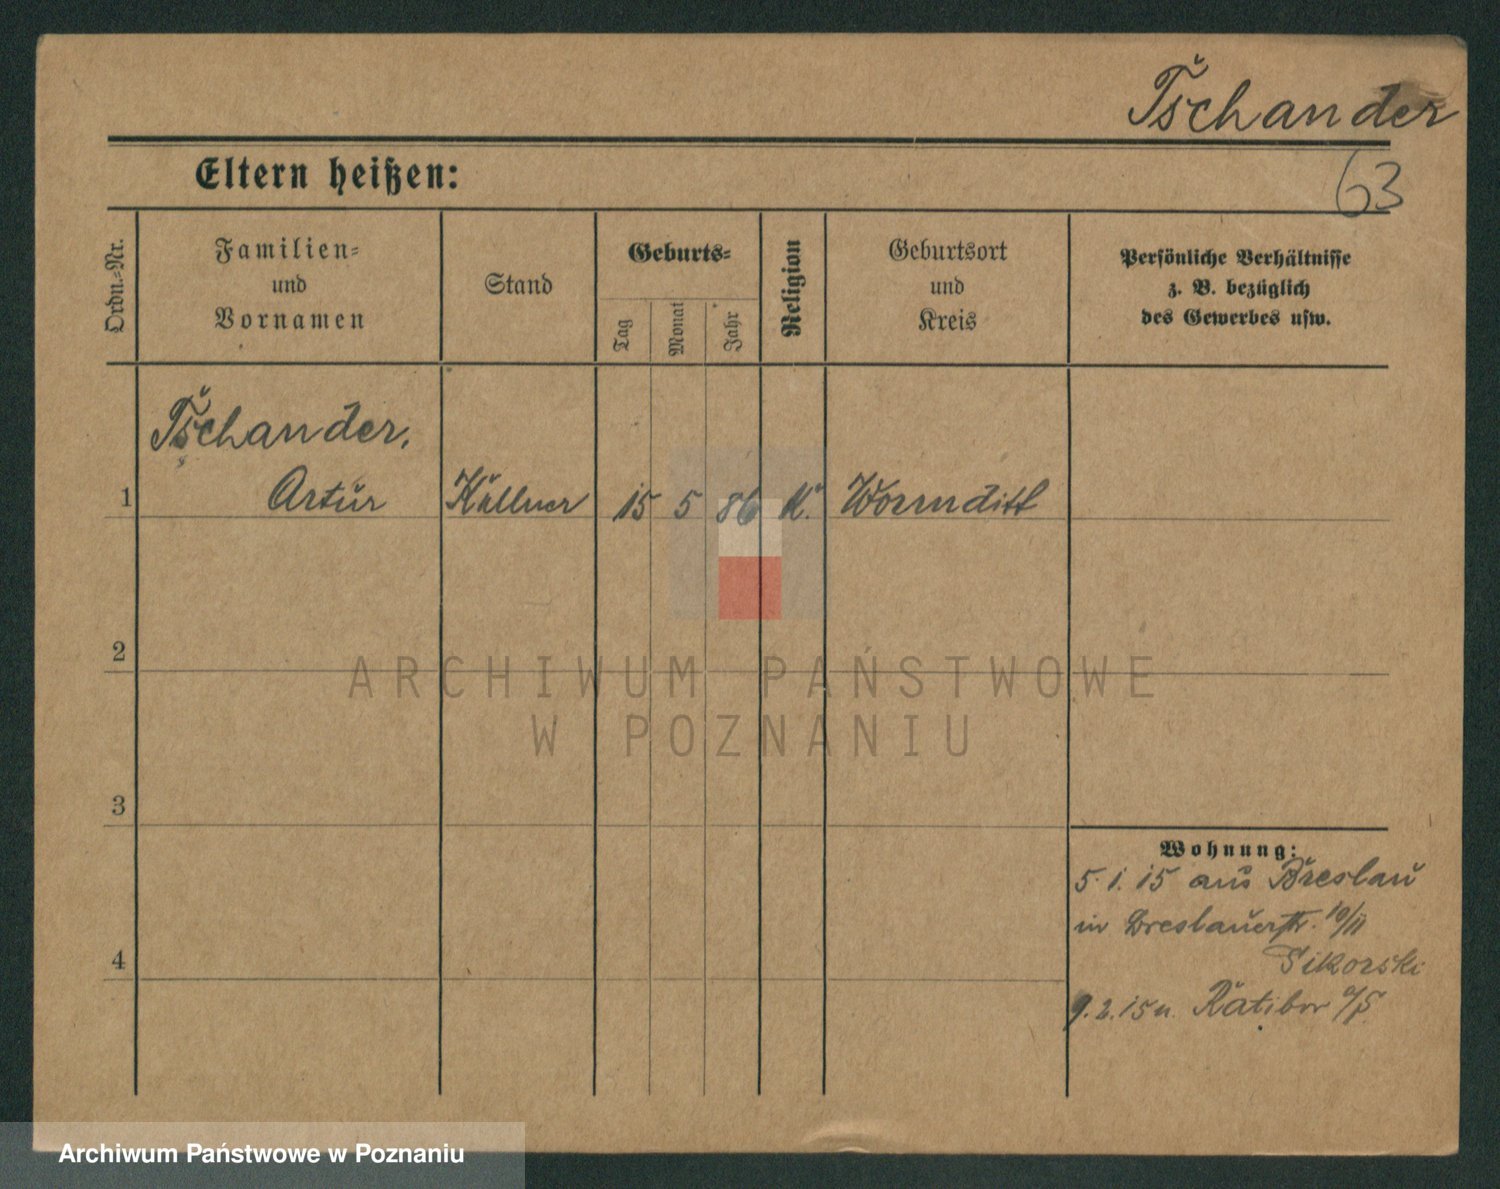 Tschander
63
Eltern heißen:
Ordn.-Nr.
Familien-
und
Vornamen
Stand
Geburts-
Tag
Monat
Jahr
Religion
Geburtsort
und
Kreis
Persönliche Verhältnisse
z. B. bezüglich
des Gewerbes usw.
Tschander,
1 Artur Kellner 15 5 86 K. Wormditt
2
3
4
Wohnung:
5.1.15 aus Breslau
in Breslauerstr. 10/11
Sikorski
9.2.15 n. Ratibor o/S
ARCHIWUM PAŃSTWOWE
W POZNANIU
Archiwum Państwowe w Poznaniu